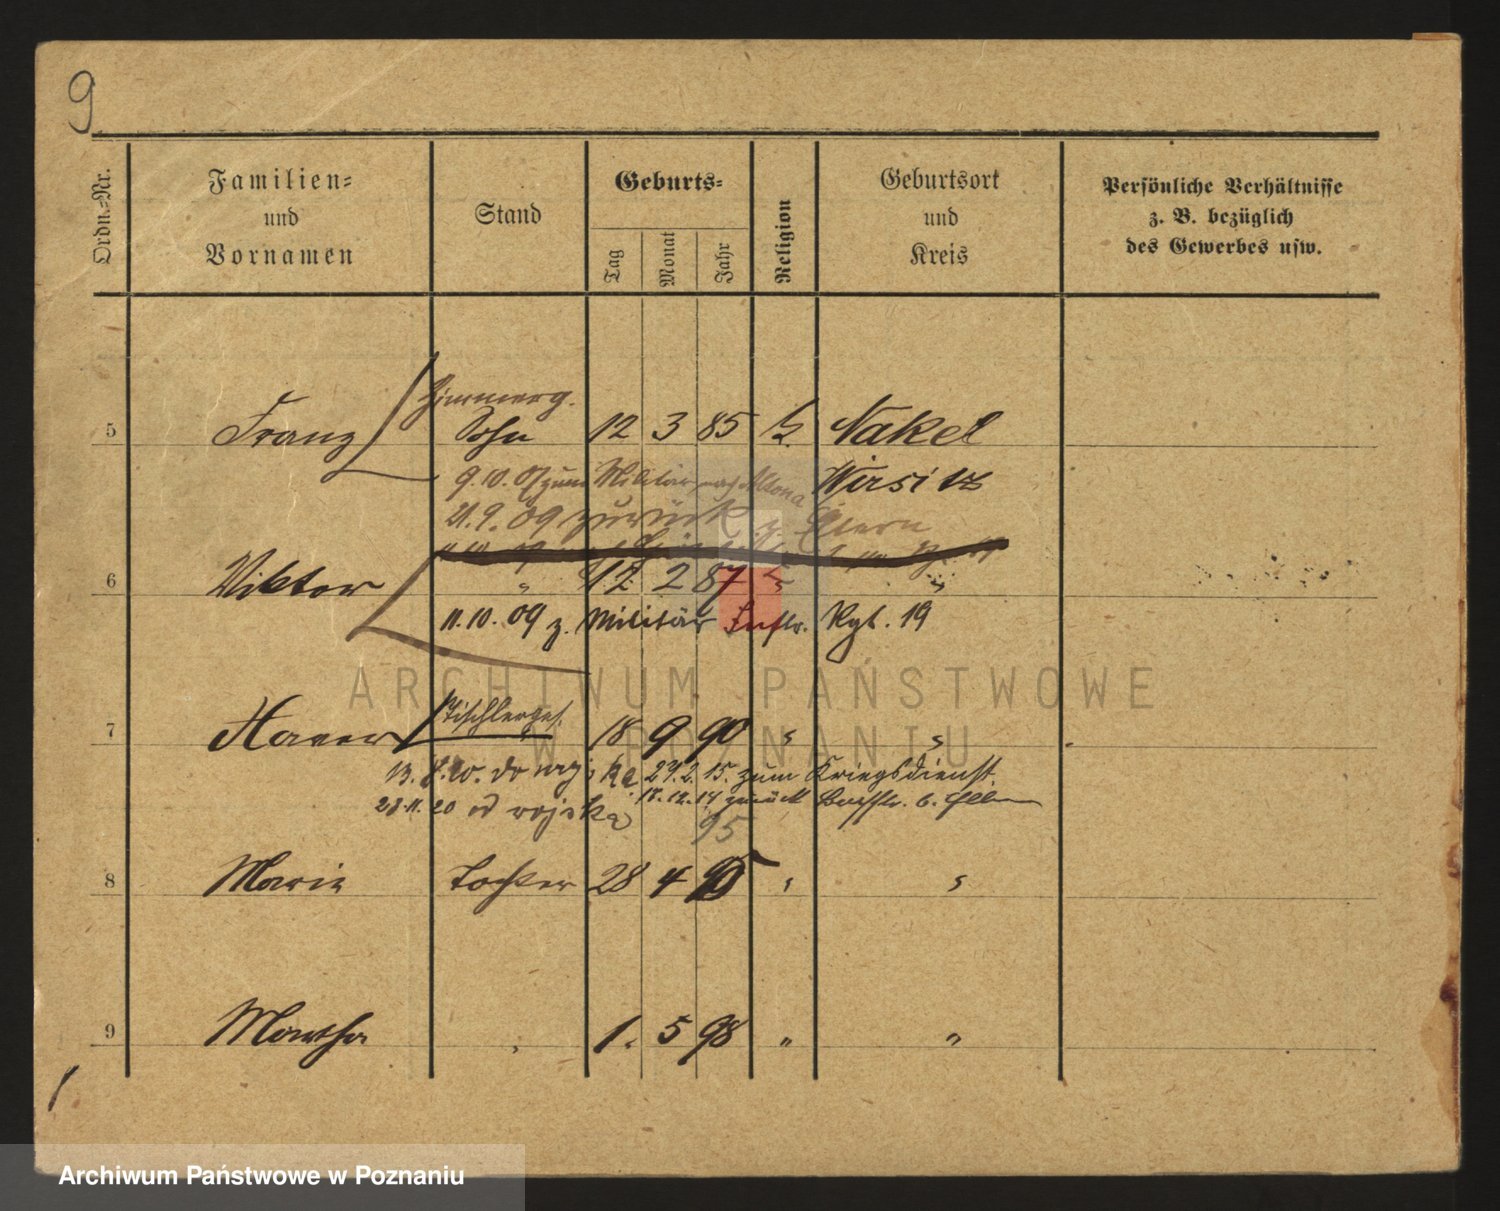 9
Ordn.=Nr.
Familien=
und
Vornamen
Stand
Geburts=
Tag
Monat
Jahr
Religion
Geburtsort
und
Kreis
Persönliche Verhältnisse
z. B. bezüglich
des Gewerbes usw.
Zimmerg.
5 Franz Sohn 12 3 85 k. Nakel
9.10.07 zum Militär nach Altona Wirsitz
21.9.09 zurück z. Eltern
6 Viktor " 17. 2 87 " "
11.10.09 z. Militär Inftr. Rgt. 19
Tischlerges.
7 Xaver 18 9 90 " "
13. 8. 20. do wojska 24.2.15. zum Kriegsdienst
23.11.20 od wojska 18.12.14 zurück b.
95
8 Marie Tochter 28 4 95 " "
9 Martha " 1. 5 98 " "
ARCHIWUM PAŃSTWOWE
W POZNANIU
Archiwum Państwowe w Poznaniu